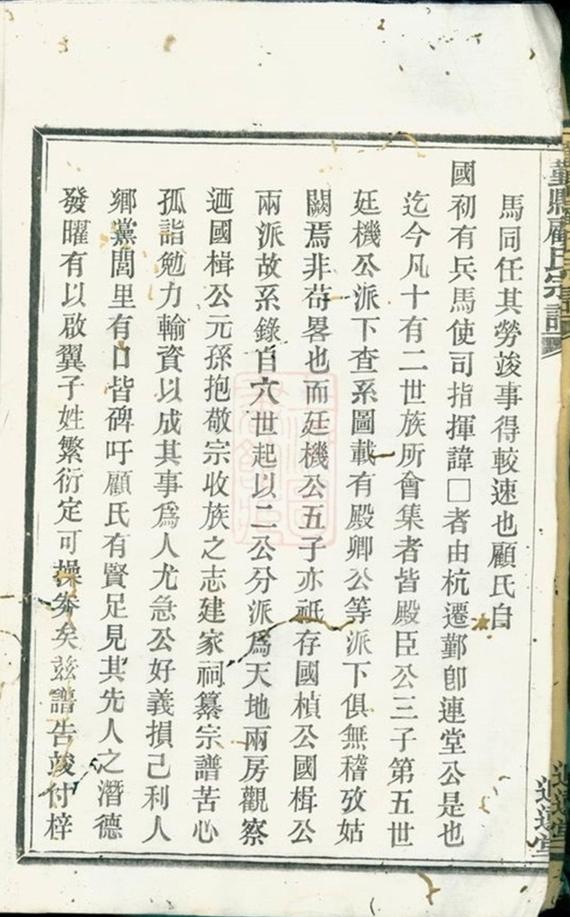 馬同任其勞竣事得較速也顧氏自
國初有兵馬使司指揮諱□者由杭遷鄞卽連堂公是也
迄今凡十有二世族所會集者皆殿臣公三子第五世
廷機公派下查系圖載有殿卿公等派下俱無稽攷姑
闕焉非苟畧也而廷機公五子亦祗存國楨公國楫公
兩派故系錄自六世起以二公分派爲天地兩房觀察
迺國楫公元孫抱敬宗收族之志建家祠纂宗譜苦心
孤詣勉力輸資以成其事爲人尤急公好義損己利人
鄉黨閭里有口皆碑吁顧氏有賢足見其先人之潛德
發曜有以啟翼子姓繁衍定可操券矣兹譜告竣付梓
鄞縣顧氏宗譜